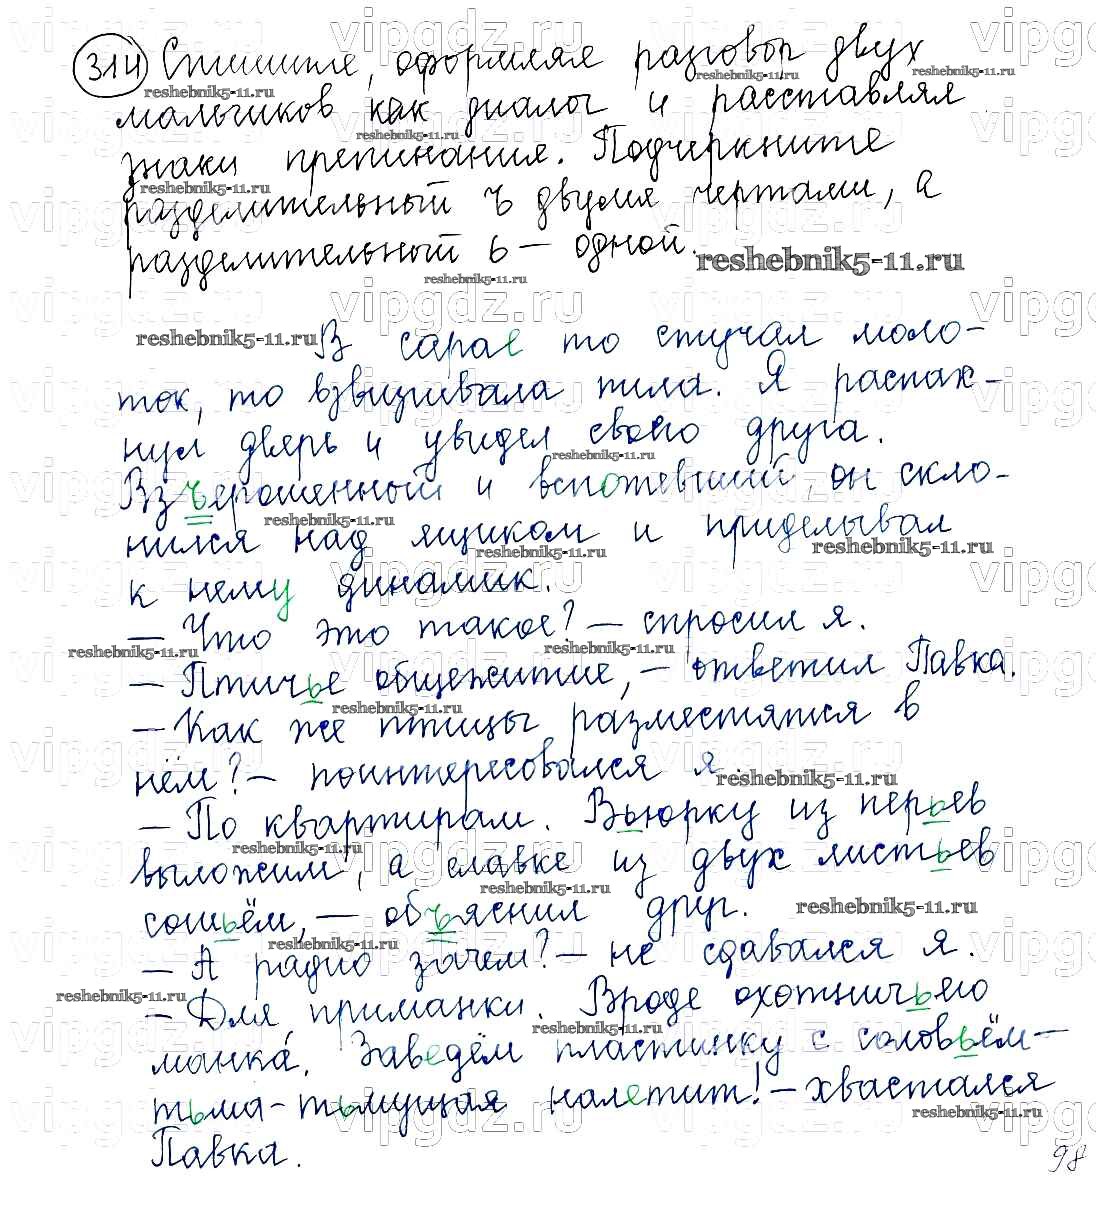 314 Спишите, оформляя разговор двух
мальчиков как диалог и расставляя
знаки препинания. Подчеркните
разделительный ъ двумя чертами, а
разделительный ь — одной.
reshebnik5-11.ru
В сарае то стучал моло-
ток, то взвизгивала пила. Я распах-
нул дверь и увидел своего друга.
Взъерошенный и вспотевший, он скло-
нился над ящиком и приделывал
к нему динамик.
— Что это такое? — спросил я.
— Птичье общежитие, — ответил Павка.
— Как же птицы разместятся в
нём? — поинтересовался я.
— По квартирам. Вьюрку из перьев
выложим, а славке из двух листьев
сошьём, — объяснил друг.
— А радио зачем? — не сдавался я.
— Для приманки. Вроде охотничьего
манка. Заведём пластинку с соловьём —
тьма-тьмущая налетит! — хвастался
Павка.
98